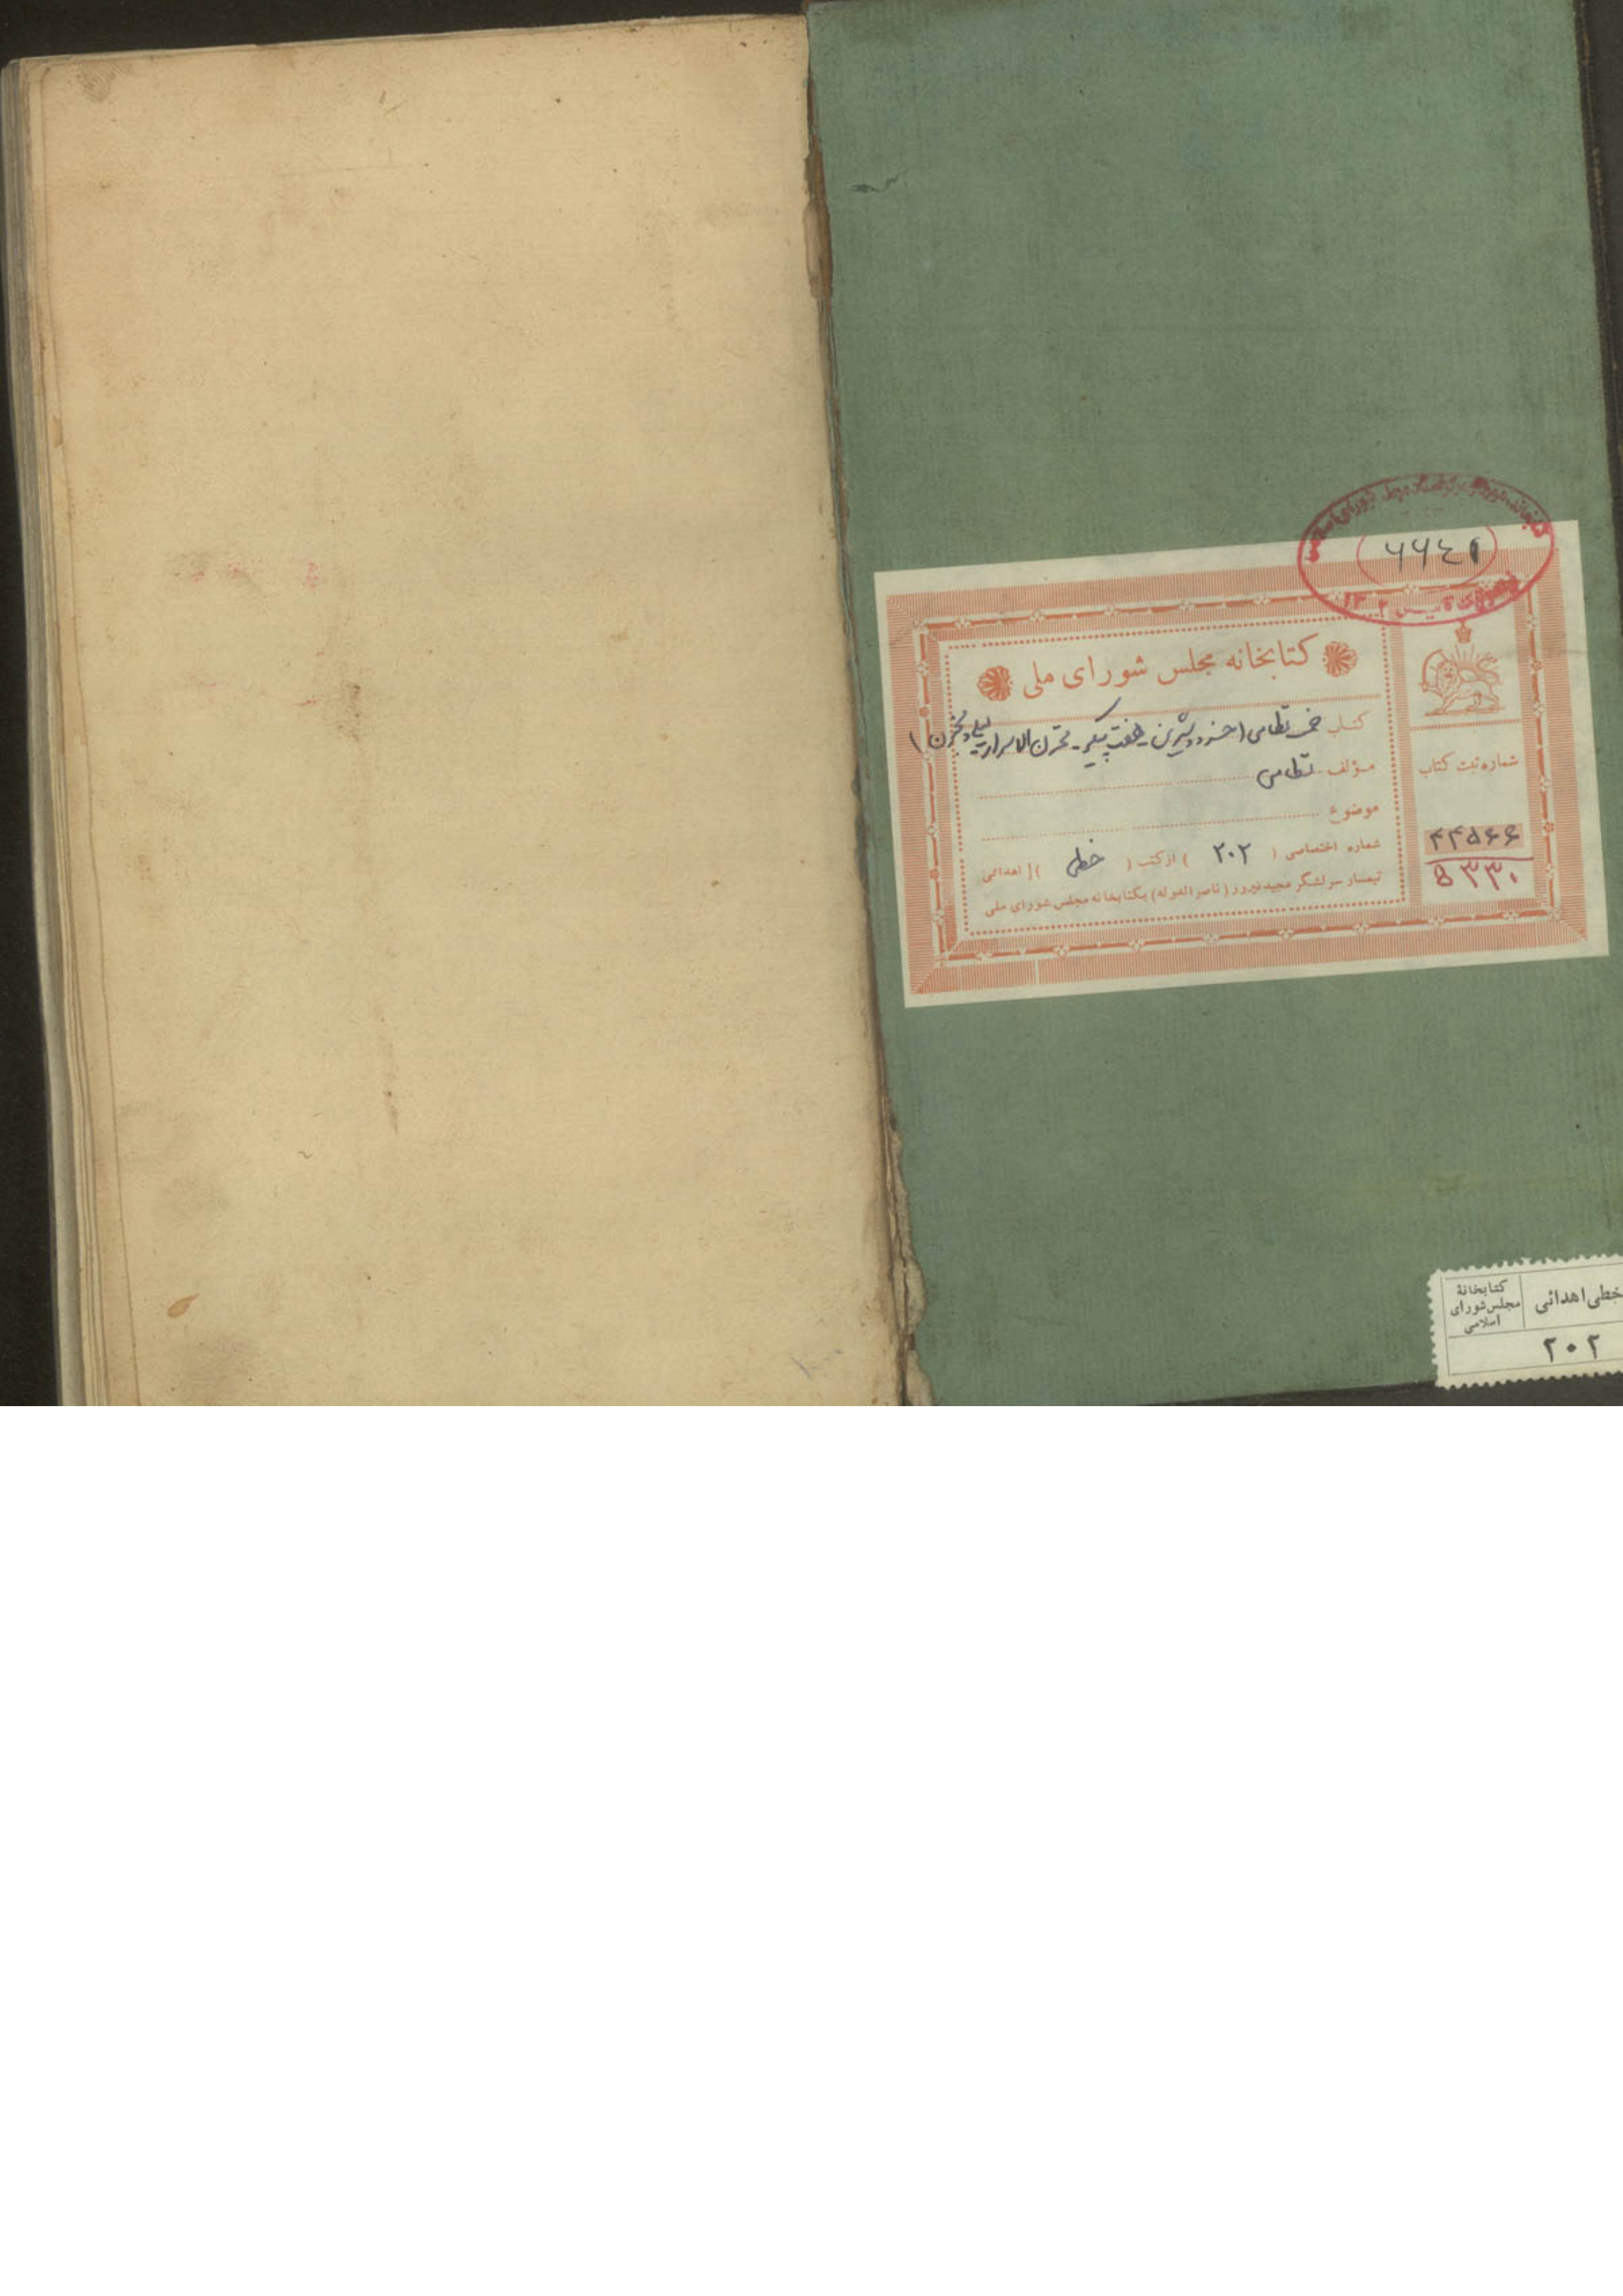 ۶۶۴۱
کتابخانه مجلس شورای ملی
کتاب خمسه نظامی (خسرو و شیرین - هفت پیکر - مخزن الاسرار - لیلی و مجنون)
مؤلف نظامی
موضوع
شماره اختصاصی ( ۲۰۲ ) از کتب ( خطی ) اهدائی
تیمسار سرلشگر مجید فیروز (ناصرالدوله) بکتابخانه مجلس شورای ملی
شماره ثبت کتاب
۴۴۵۶۶
۵۳۳۰
خطی اهدائی
کتابخانهٔ
مجلس شورای
اسلامی
۲۰۲